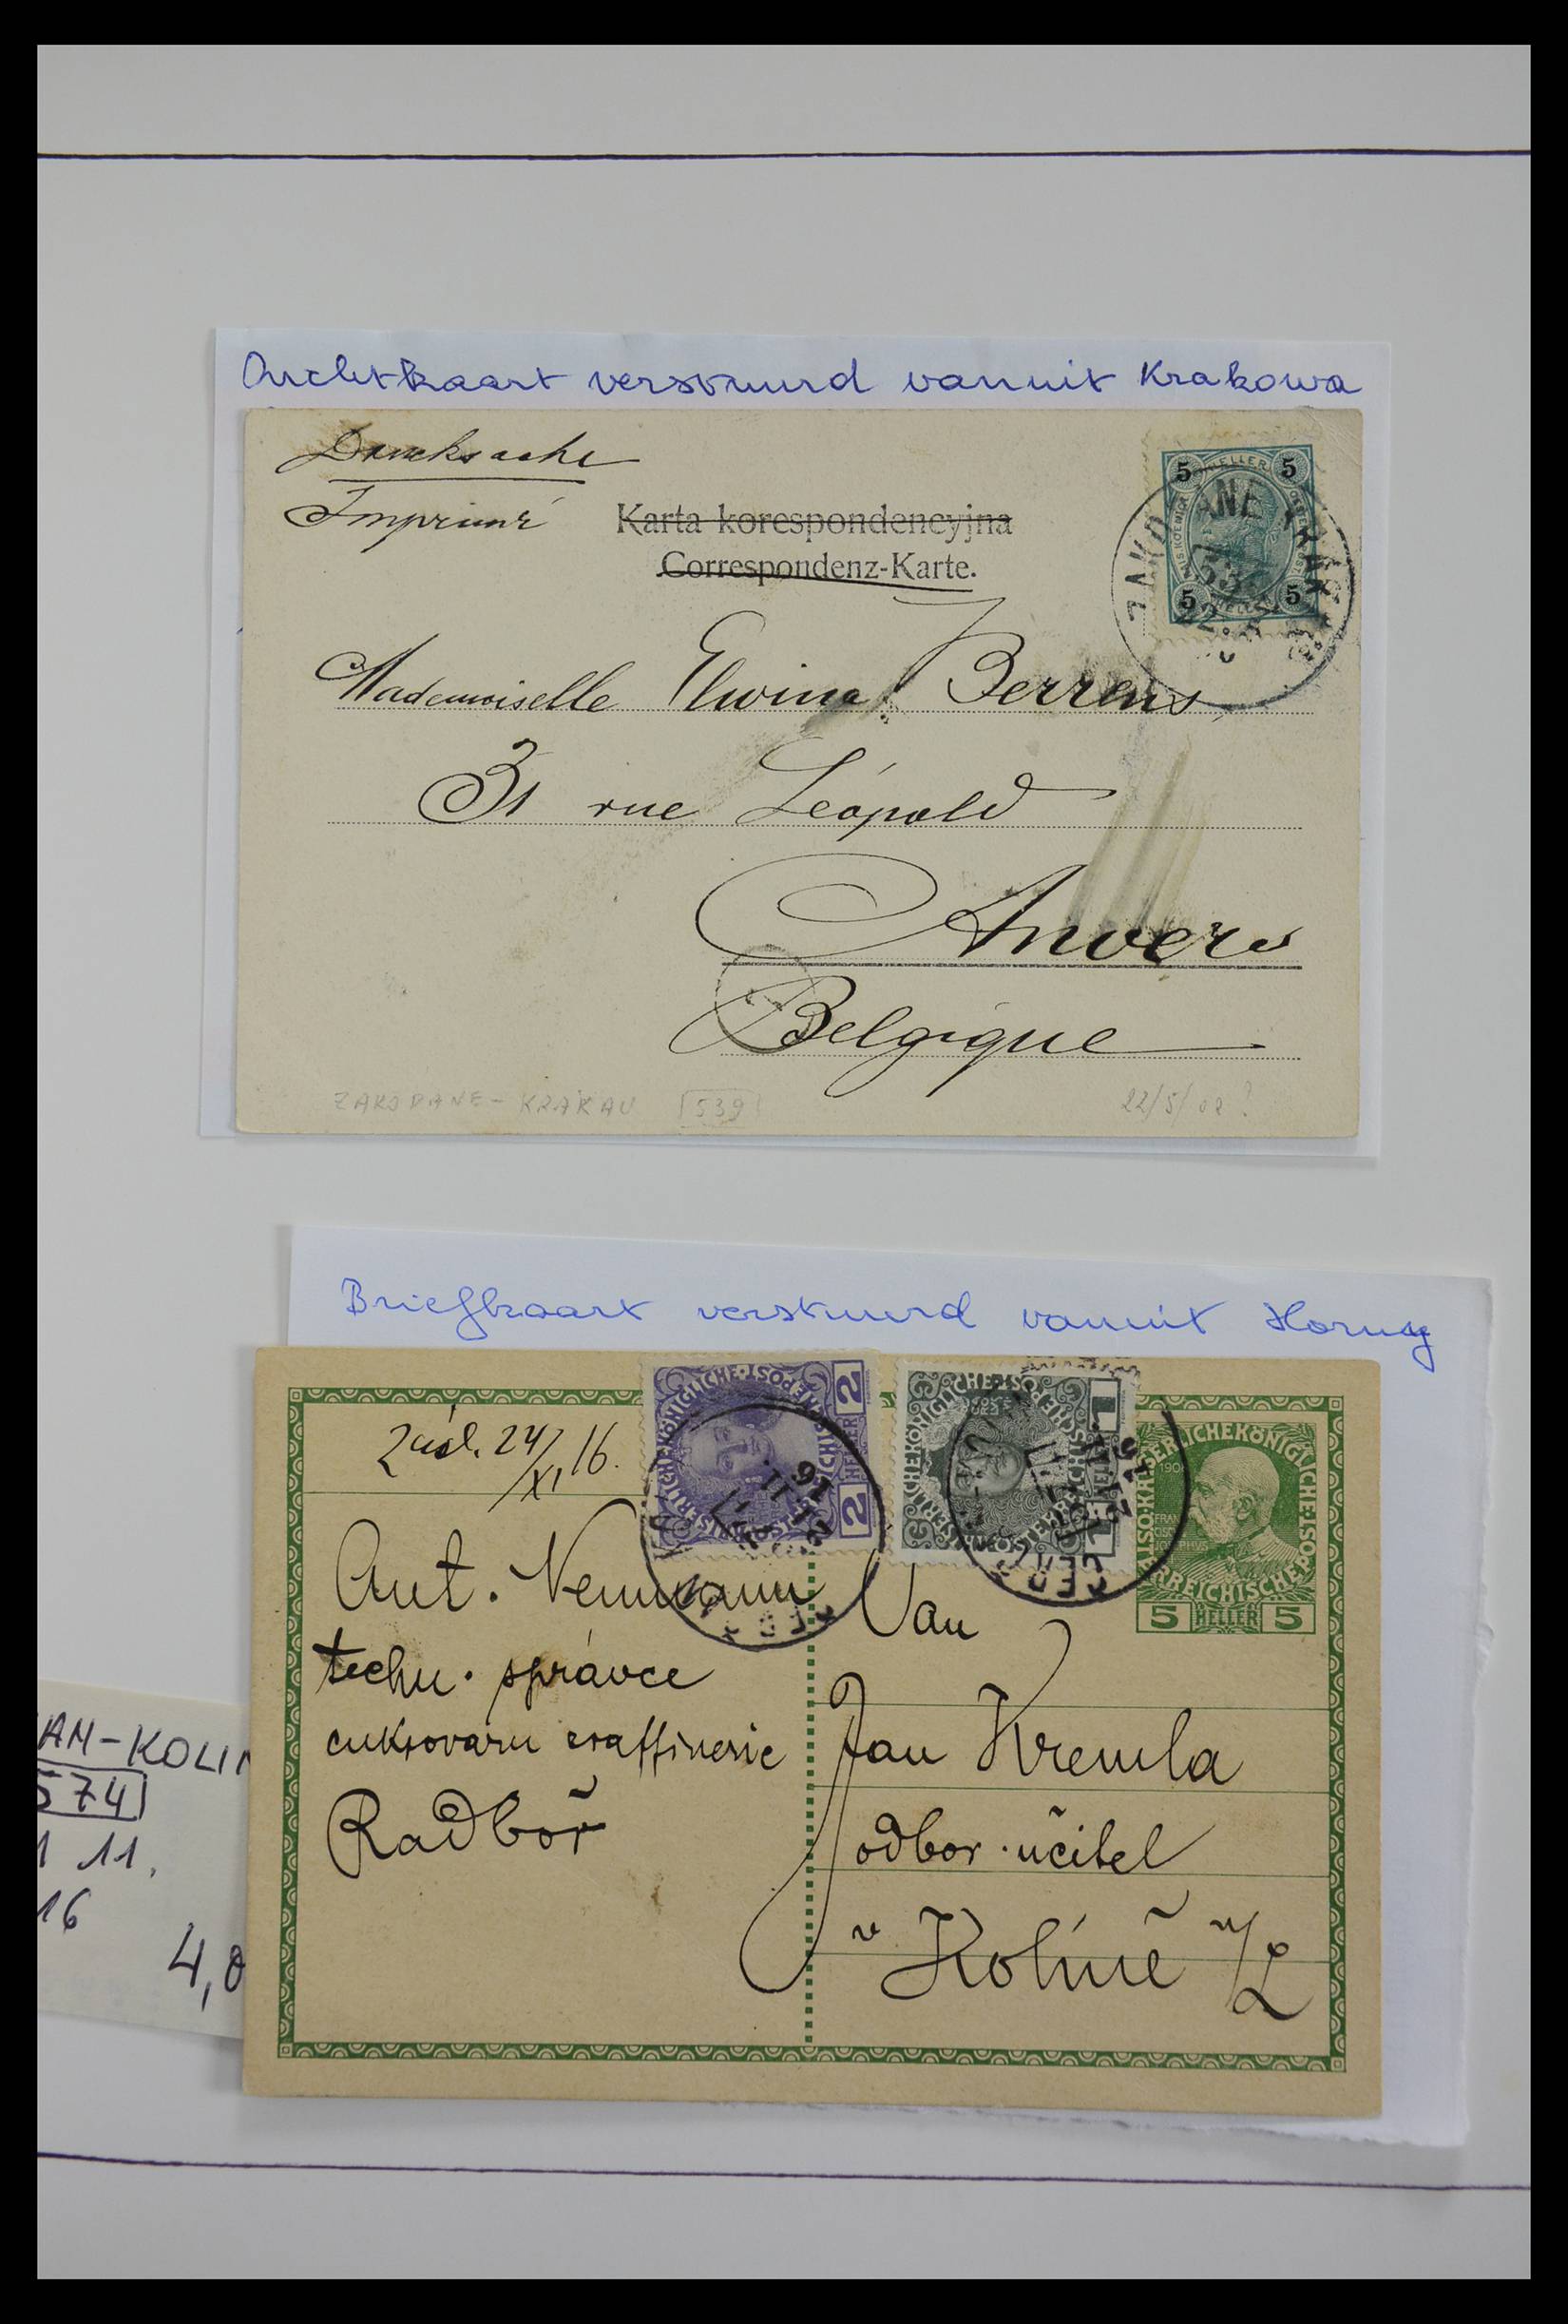 Zichtkaart verstuurd vanuit Krakowa
Drucksache
Imprimé
Karta korespondencyjna
Correspondenz-Karte.
5 HELLER 5
5 HELLER 5
ZAKOPANE KRAKAU
Mademoiselle Elwina Berrens
31 rue Léopold
Anvers
Belgique
ZAKOPANE - KRAKAU 539 22/5/02?
Briefkaart verstuurd vanuit Horny
24/XI 16.
2 HELLER 2
1 HELLER 1
KAISERLICHE KÖNIGLICHE
ÖSTERREICHISCHE POST
5 HELLER 5
Ant. Neumann
techn. správce
cukrovaru rraffinerie
Radboř
Pan
Jan Kremla
odbor. učitel
v Kolíně n/L
AM-KOLIN
574
11.
16
4,0